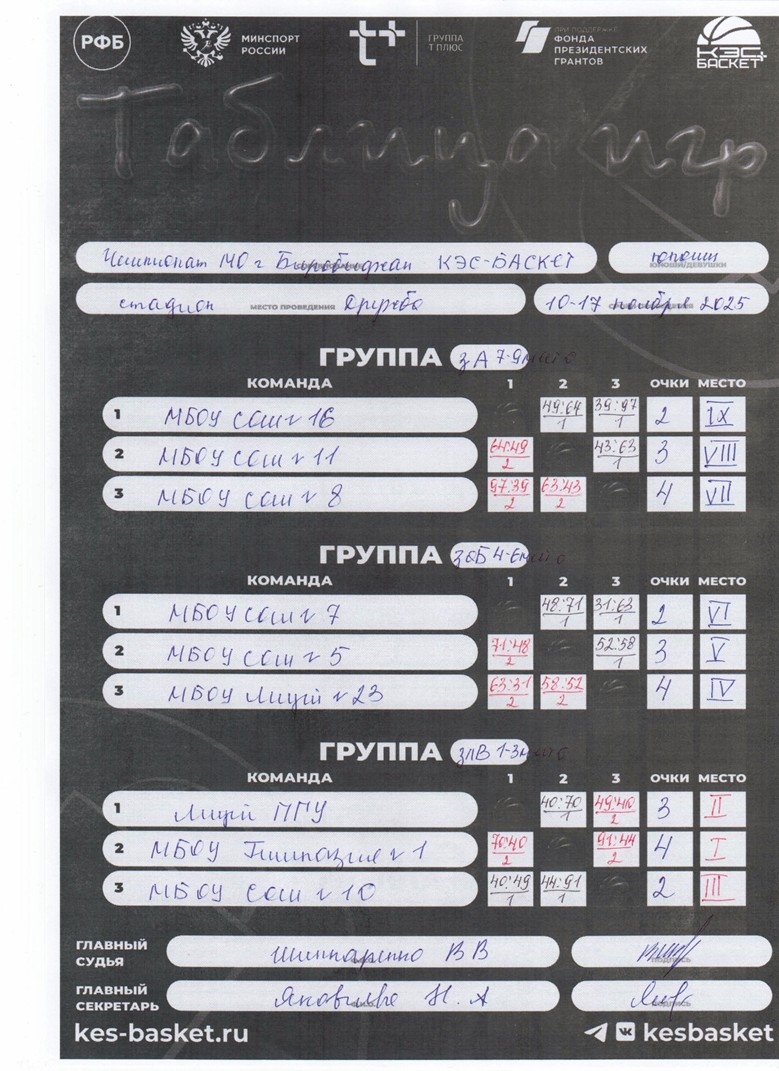 РФБ МИНСПОРТ РОССИИ ГРУППА Т ПЛЮС ПРИ ПОДДЕРЖКЕ ФОНДА ПРЕЗИДЕНТСКИХ ГРАНТОВ КЭС БАСКЕТ
Таблица игр
Чемпионат МО г Биробиджан КЭС-БАСКЕТ юноши
ЮНОШИ/ДЕВУШКИ
стадион МЕСТО ПРОВЕДЕНИЯ Дружба 10-17 ноября 2025
ГРУППА А 7-9 место
КОМАНДА 1 2 3 ОЧКИ МЕСТО
1 МБОУ СОШ № 16 49:64/1 39:97/1 2 IX
2 МБОУ СОШ № 11 64:49/2 43:63/1 3 VIII
3 МБОУ СОШ № 8 97:39/2 63:43/2 4 VII
ГРУППА Б 4-6 место
КОМАНДА 1 2 3 ОЧКИ МЕСТО
1 МБОУ СОШ № 7 48:71/1 31:63/1 2 VI
2 МБОУ СОШ № 5 71:48/2 52:58/1 3 V
3 МБОУ Лицей № 23 63:31/2 58:52/2 4 IV
ГРУППА В 1-3 место
КОМАНДА 1 2 3 ОЧКИ МЕСТО
1 Лицей ПГУ 40:70/1 49:40/2 3 II
2 МБОУ Гимназия № 1 70:40/2 91:44/2 4 I
3 МБОУ СОШ № 10 40:49/1 44:91/1 2 III
ГЛАВНЫЙ СУДЬЯ В В
ПОДПИСЬ
ГЛАВНЫЙ СЕКРЕТАРЬ Н. А
ПОДПИСЬ
kes-basket.ru kesbasket